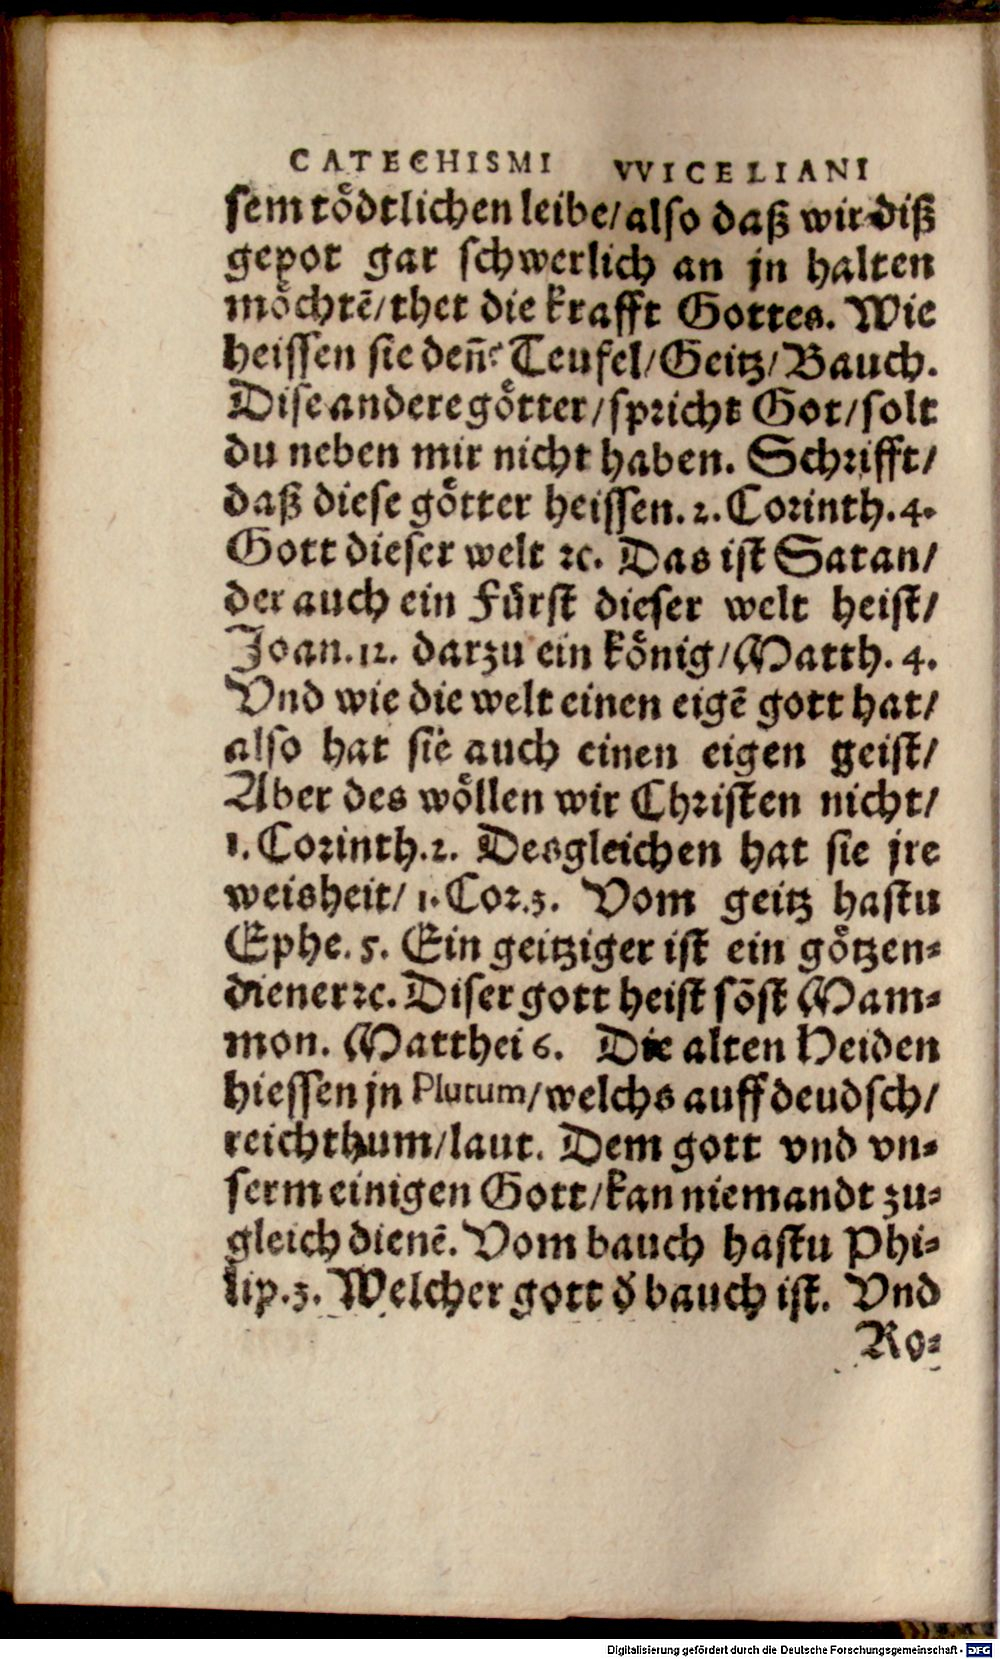 CATECHISMI VVICELIANI
sem toͤdtlichen leibe/also daß wir diß
gepot gar schwerlich an jn halten
moͤchtē/thet die krafft Gottes. Wie
heissen sie deñ? Teufel/Geitz/Bauch.
Dise andere goͤtter/spricht Got/solt
du neben mir nicht haben. Schrifft/
daß diese goͤtter heissen. 2. Corinth. 4.
Gott dieser welt ⁊c. Das ist Satan/
der auch ein Fuͤrst dieser welt heist/
Joan. 12. darzu ein koͤnig/Matth. 4.
Vnd wie die welt einen eigē gott hat/
also hat sie auch einen eigen geist/
Aber des woͤllen wir Christen nicht/
1. Corinth. 2. Desgleichen hat sie jre
weisheit/ 1. Cor. 3. Vom geitz hastu
Ephe. 5. Ein geitziger ist ein goͤtzen-
diener ⁊c. Diser gott heist sōst Mam-
mon. Matthei 6. Die alten Heiden
hiessen jn Plutum/welchs auff deudsch/
reichthum/laut. Dem gott vnd vn-
serm einigen Gott/kan niemandt zu-
gleich dienē. Vom bauch hastu Phi-
lip. 3. Welcher gott d̄ bauch ist. Vnd
Ro-
Digitalisierung gefördert durch die Deutsche Forschungsgemeinschaft - DFG